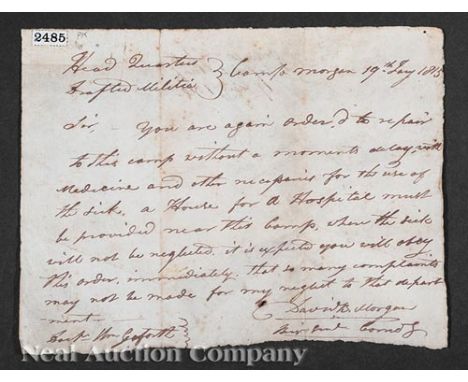 2485
Head Quarters } Camp Morgan 19th Jany 1815
Drafted Militia
Sir, You are again order,d to repair
to this camp without a moments delay, with
Medicine and other necessaries for the use of
the sick, a House for a Hospital must
be provided near this Camp, where the sick
will not be neglected, it is expected you will obey
this order, immediately, that so many complaints
may not be made for my neglect to this depart
ment David B. Morgan
Doct Wm Goforth
Neal Auction Company